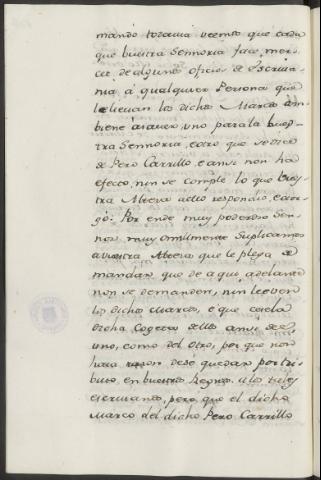 mando todavia veemos que cada
que buestra Sennoria face mer-
ced de alguno oficio de Escriva-
nia á qualquier Persona que
le lievan los dichos Marcos am-
bien uno para la bues-
tra Sennoria, è otro que se dice
de Pero Carrillo, è ansi non ha
efecto, nin se comple lo que Vues-
tra Alteza à ello respondio, è otor-
gó: Por ende muy poderoso Sen-
nor muy omillmente Suplicamos
a vuestra Alteza que le plega de
mandar que de aqui adelante
non se demanden, nin lleven
los dichos Marcos, è que cada
dicha Cogeros dellos ansi del
uno, como del otro, por que non
haia razon de se quedar por tri-
buto en buestros Regnos à los tales
escrivanos, pero que el dicho
Marco del dicho Pero Carrillo